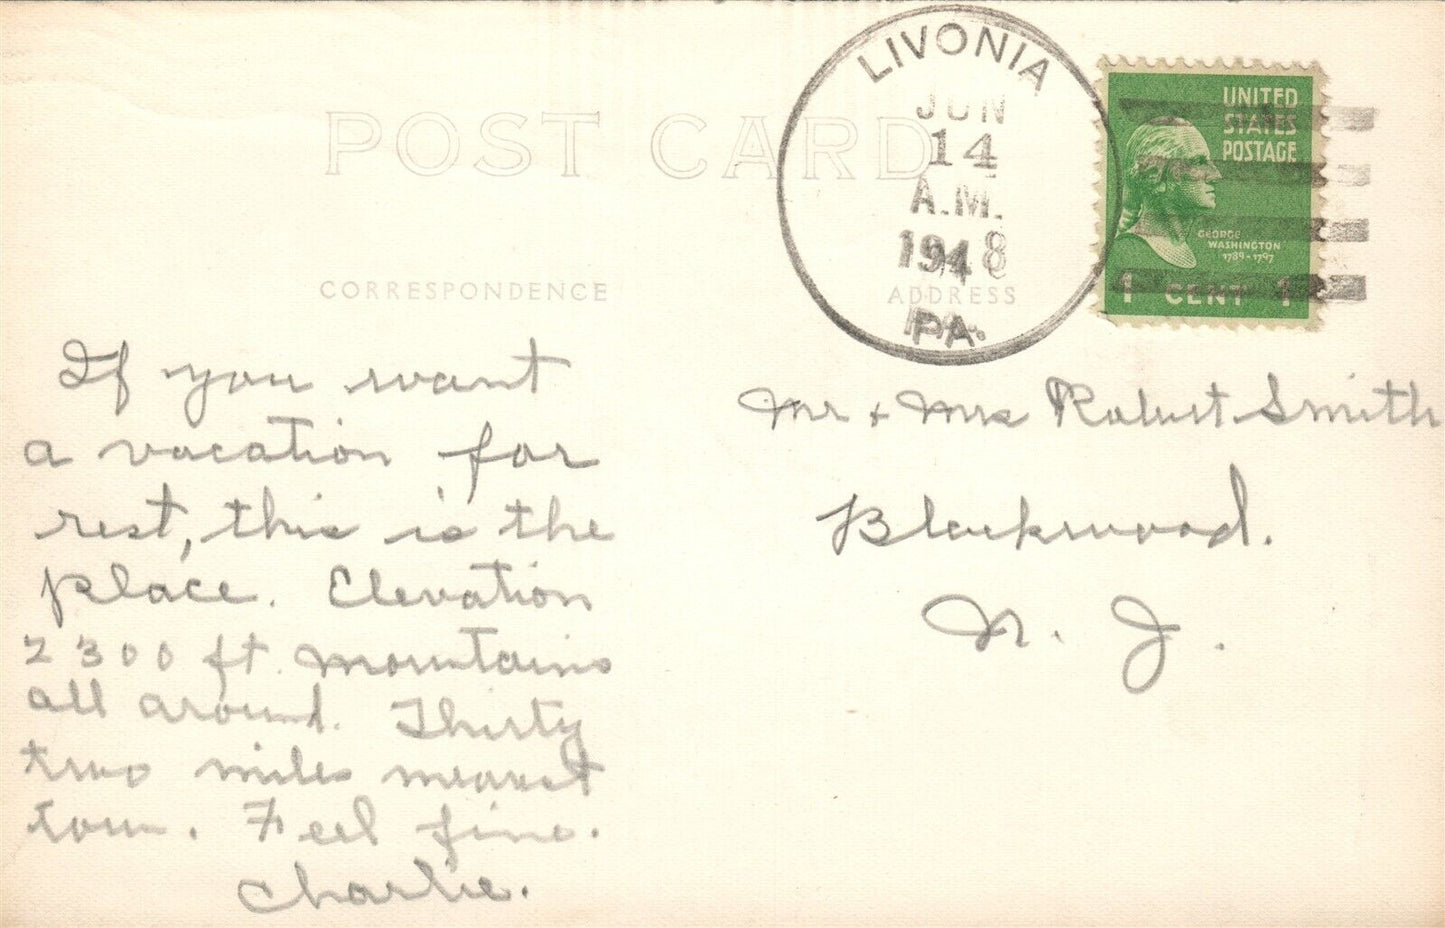 LIVONIA
JUN
14
A.M.
1948
PA.
UNITED
STATES
POSTAGE
GEORGE
WASHINGTON
1789-1797
1 CENT 1
POST CARD
CORRESPONDENCE
ADDRESS
If you want
a vacation for
rest, this is the
place. Elevation
2300 ft. mountains
all around. Thirty
two miles nearest
town. Feel fine.
Charlie.
Mr + Mrs Robert Smith
Blackwood.
N. J.